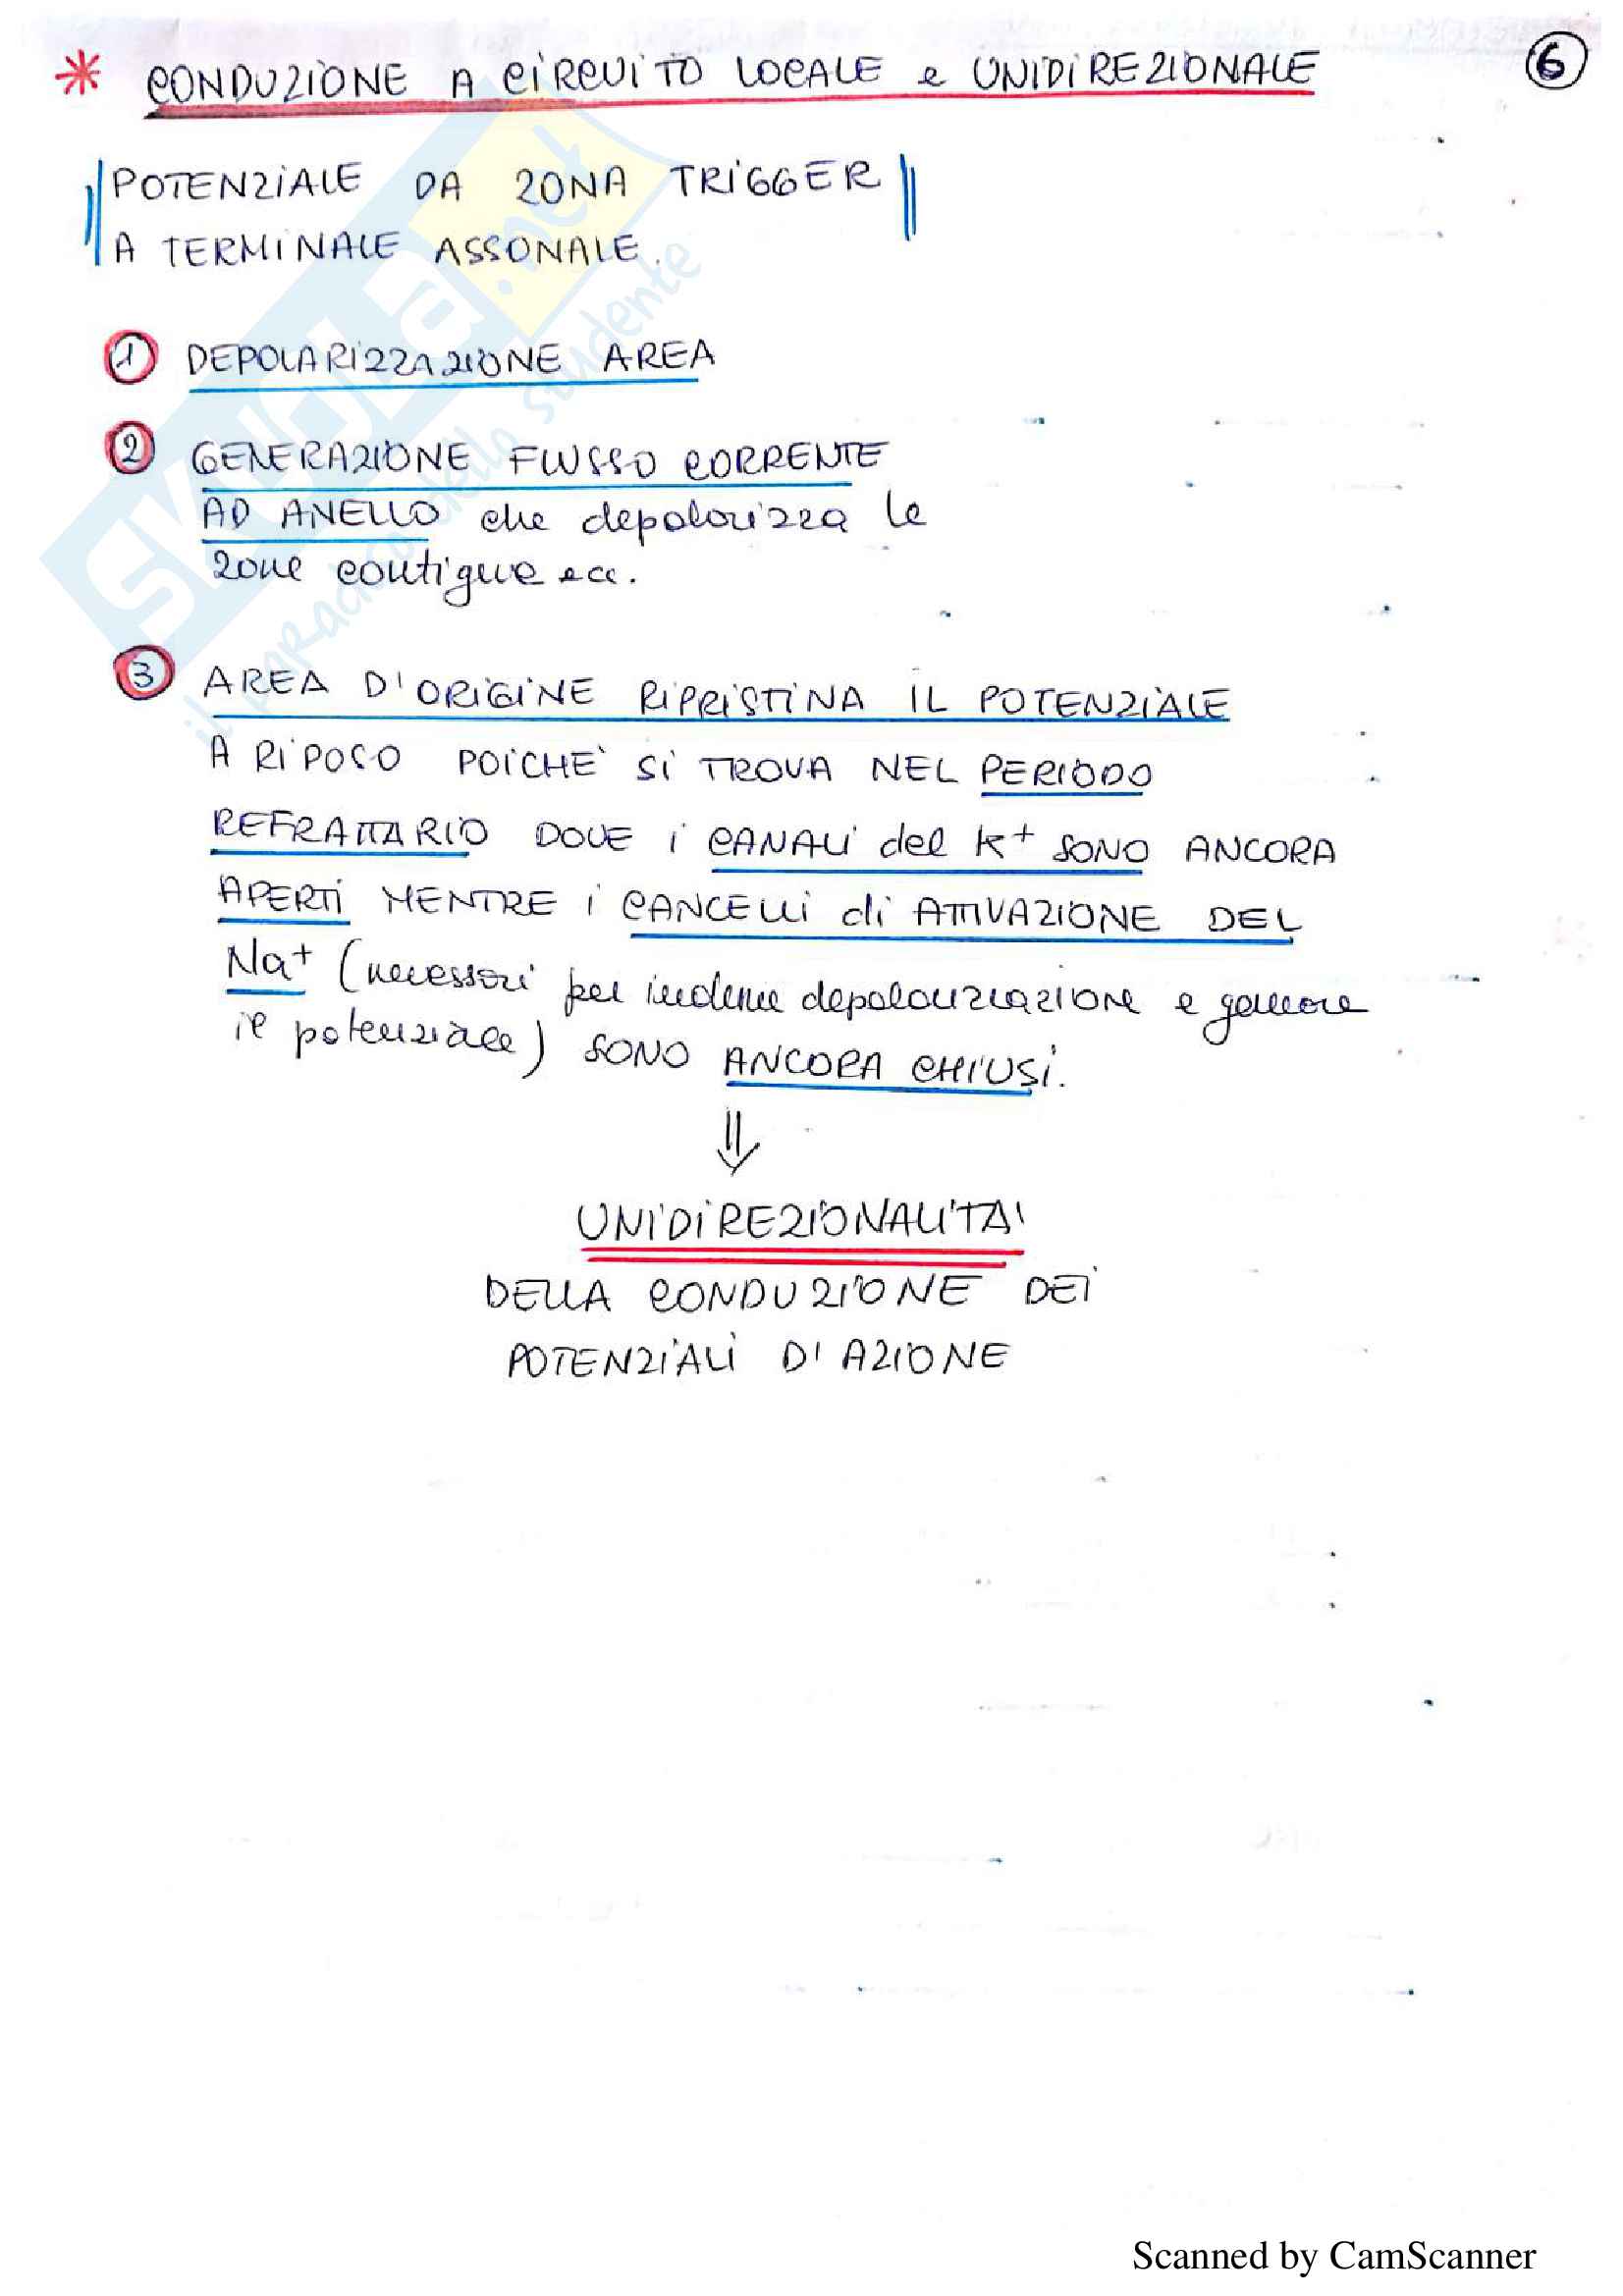 * CONDUZIONE A CIRCUITO LOCALE e UNIDIREZIONALE
6
POTENZIALE DA ZONA TRIGGER
A TERMINALE ASSONALE.
1 DEPOLARIZZAZIONE AREA
2 GENERAZIONE FLUSSO CORRENTE
AD ANELLO che depolarizza le
zone contigue ecc.
3 AREA D'ORIGINE RIPRISTINA IL POTENZIALE
A RIPOSO POICHE' SI TROVA NEL PERIODO
REFRATTARIO DOVE I CANALI del K+ SONO ANCORA
APERTI MENTRE I CANCELLI di ATTIVAZIONE DEL
Na+ (necessari per indurre depolarizzazione e generare
il potenziale) SONO ANCORA CHIUSI.
⇓
UNIDIREZIONALITA'
DELLA CONDUZIONE DEI
POTENZIALI D'AZIONE
SKUOLA.net
il paradiso dello studente
Scanned by CamScanner